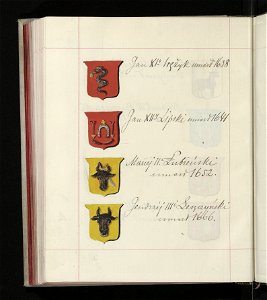 Jan XVI Wężyk umarł 1638
Jan XVII Lipski umarł 1641
Maciej II Łubieński
umarł 1652.
Jędrzej III Leszczyński
umarł 1666.